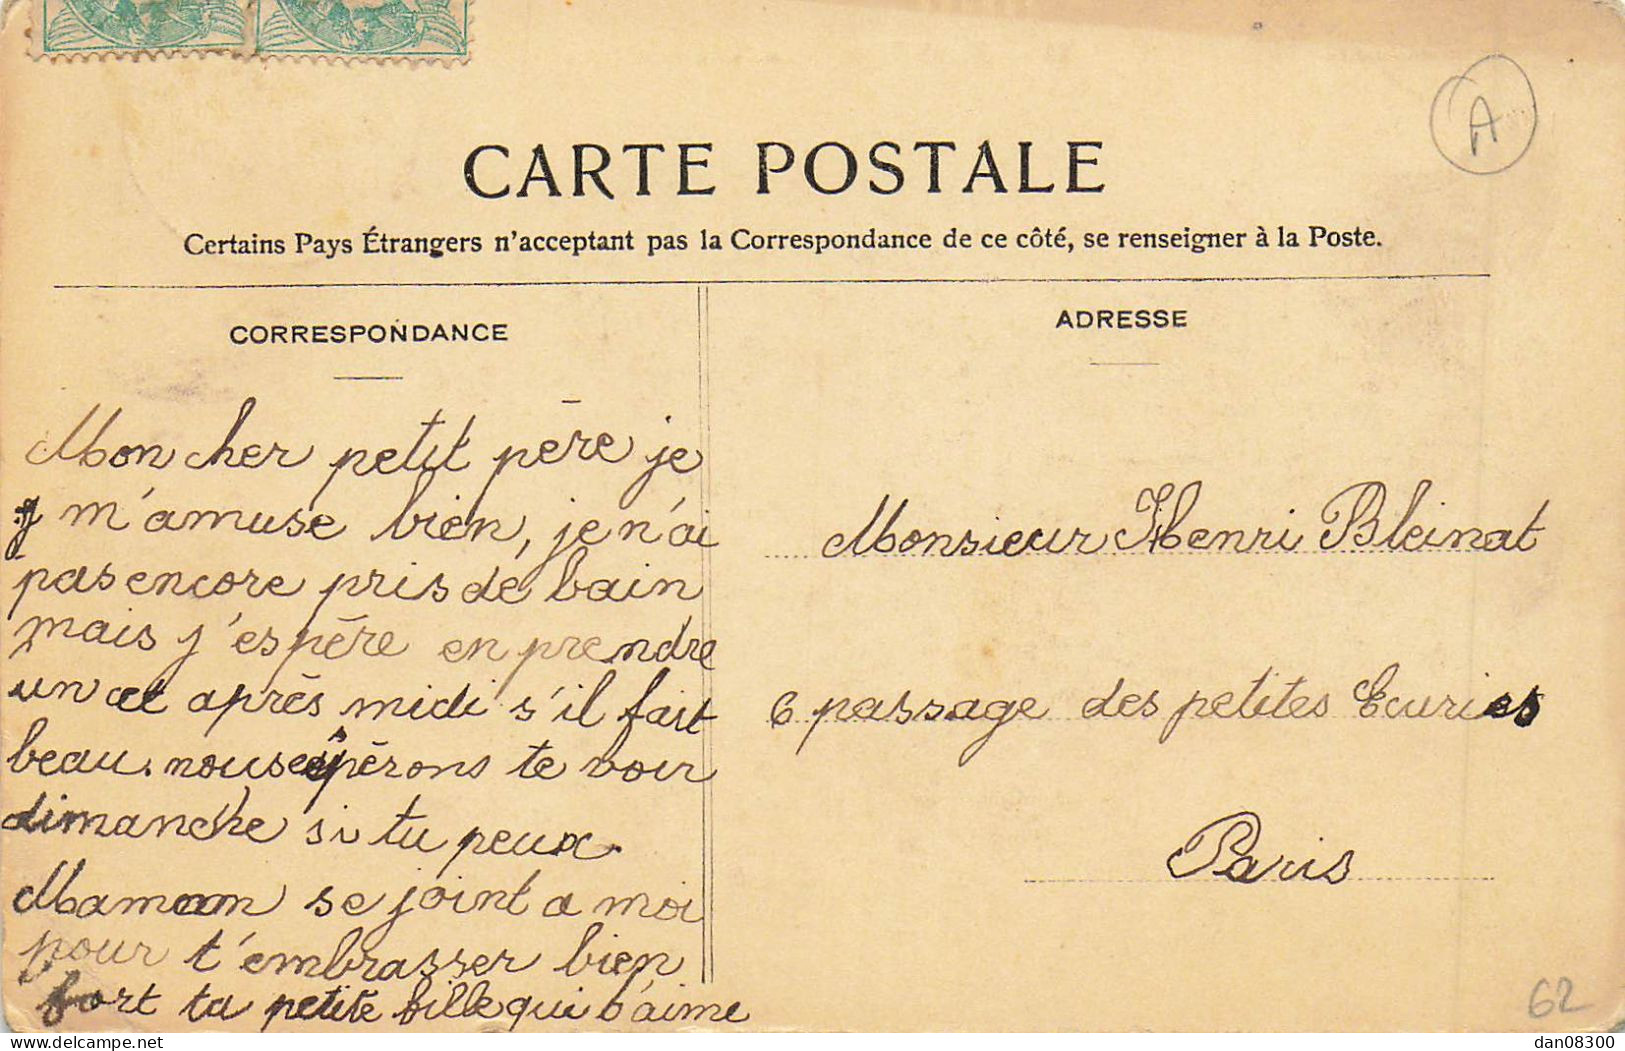 A
CARTE POSTALE
Certains Pays Étrangers n'acceptant pas la Correspondance de ce côté, se renseigner à la Poste.
CORRESPONDANCE
Mon cher petit père je
m'amuse bien, je n'ai
pas encore pris de bain
mais j'espère en prendre
un cet après midi s'il fait
beau. nous espérons te voir
dimanche si tu peux.
Maman se joint a moi
pour t'embrasser bien
fort ta petite fille qui t'aime
ADRESSE
Monsieur Henri Bleinat
6 passage des petites Ecuries
Paris
62
dan08300